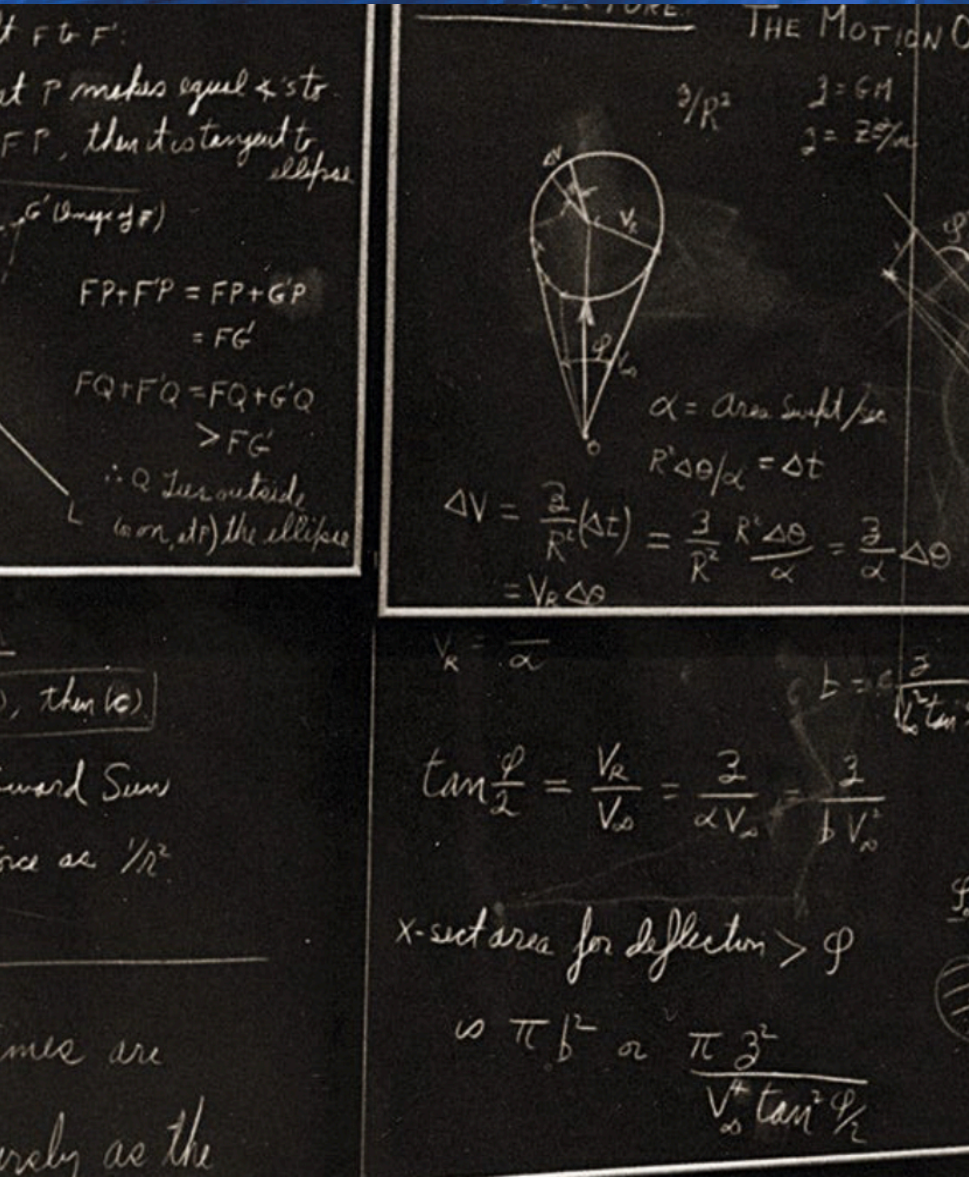 F to F':
at P makes equal ∡'s to
FP, then it is tangent to
ellipse
G' (Image of F)
FP+F'P = FP+G'P
= FG'
FQ+F'Q = FQ+G'Q
> FG'
∴ Q lies outside
(or on, at P) the ellipse
L
, then (C)
Sun
as 1/R²
are
as the
LECTURE THE MOTION O
z/R²
z = GM
ΔV
V_R
φ
V∞
O
φ
α = Area Swept/sec
R²Δθ/α = Δt
ΔV = z/R² (Δt) = z/R² R²Δθ/α = z/α Δθ
= V_R Δθ
V_R = α
b =
tan φ/2 = V_R/V∞ = z/αV∞ = z/bV∞²
x-sect area for deflection > φ
is πb² or πz²/V∞⁴ tan² φ/2